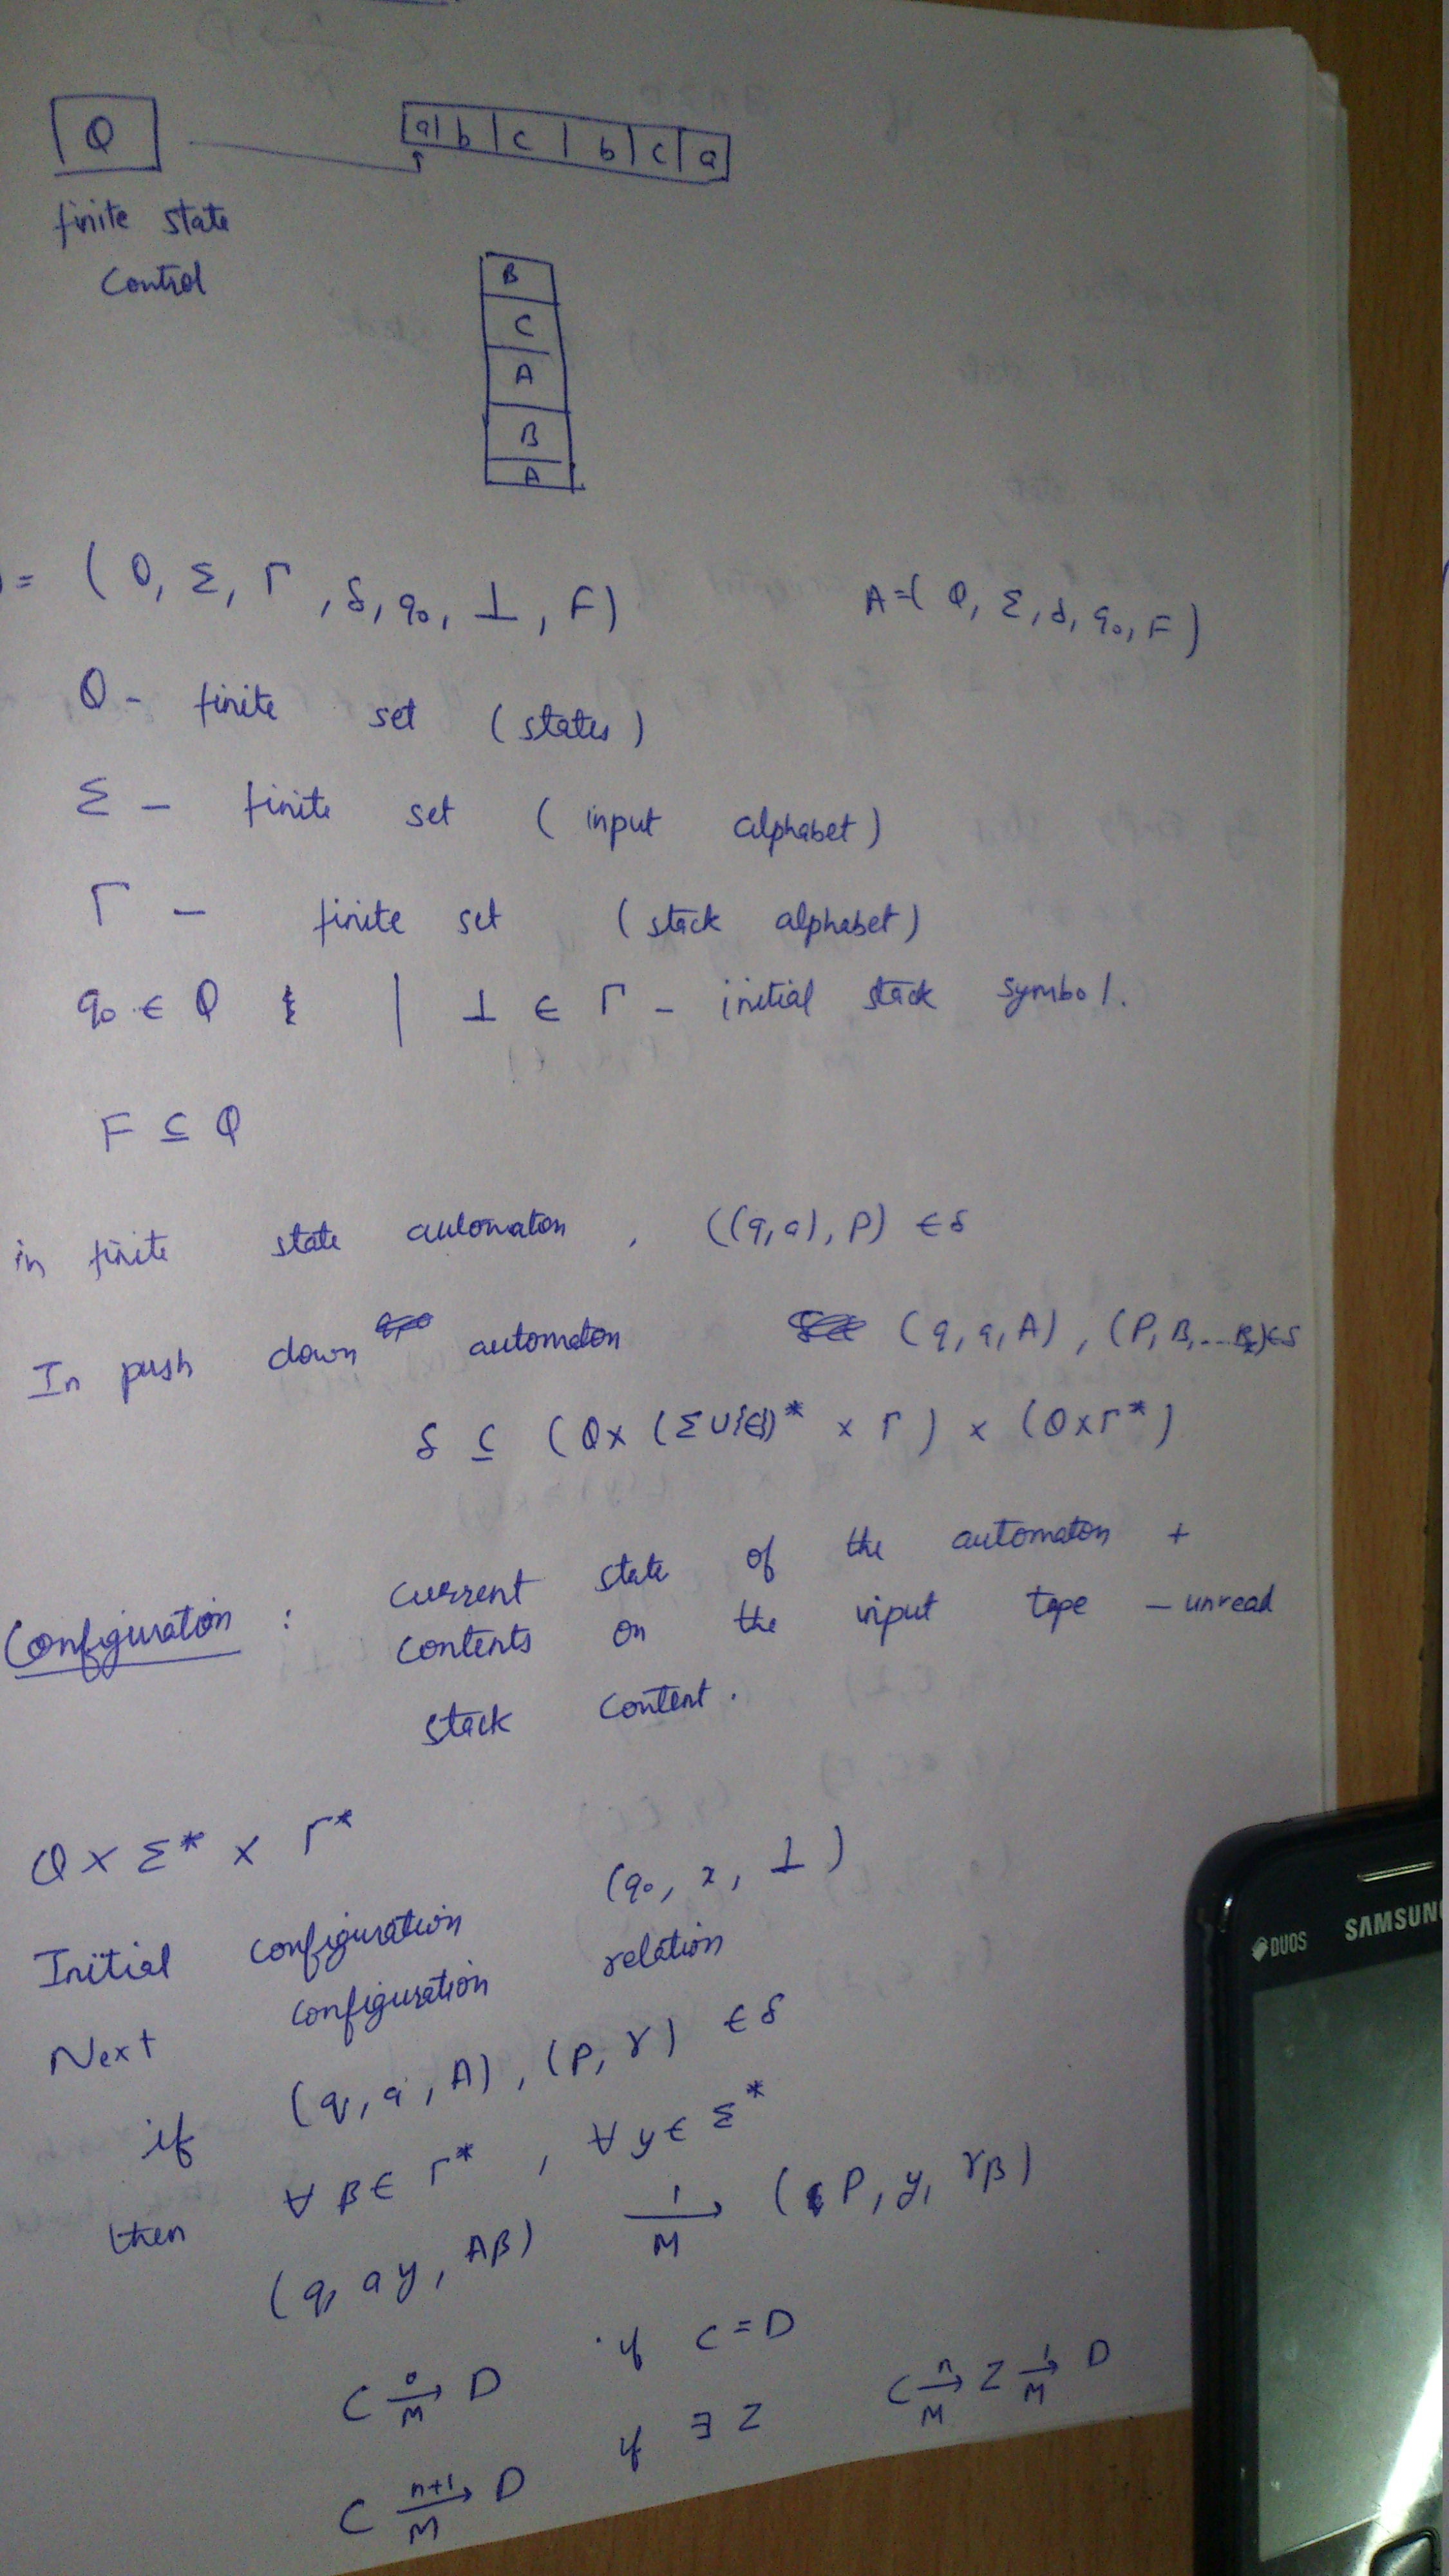 a b c b c a
Q
finite state
control
B
C
A
B
A
= (Q, Σ, Γ, δ, q₀, ⊥, F) A=(Q, Σ, δ, q₀, F)
Q - finite set (states)
Σ - finite set (input alphabet)
Γ - finite set (stack alphabet)
q₀ ∈ Q | ⊥ ∈ Γ - initial stack symbol.
F ⊆ Q
in finite state automaton, ((q, a), P) ∈ δ
In push down automaton (q, a, A), (P, B,...Bₖ)∈δ
δ ⊆ (Q x (Σ ∪ {ε})* x Γ) x (Q x Γ*)
Configuration : current state of the automaton +
contents on the input tape - unread
stack content.
Q x Σ* x Γ*
Initial configuration (q₀, x, ⊥)
Next configuration relation
if (q, a, A), (P, γ) ∈ δ
∀ β ∈ Γ*, ∀ y ∈ Σ*
then (q, ay, Aβ) 1→M (P, y, γβ)
C 0→M D if C = D
C n+1→M D if ∃ Z C n→M Z 1→M D
DUOS SAMSUNG